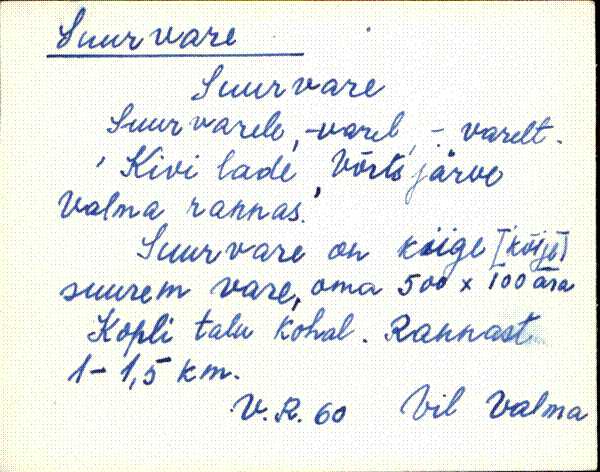 Suurvare
Suurvare
Suurvarele, -varel, - varelt.
'Kivi lade' Võrtsjärve
Valma rannas.
Suurvare on kõige [kõjge]
suurem vare, oma 500 x 100 ära
Kopli talu kohal. Rannast
1 - 1,5 km.
V.R. 60 Vil Valma